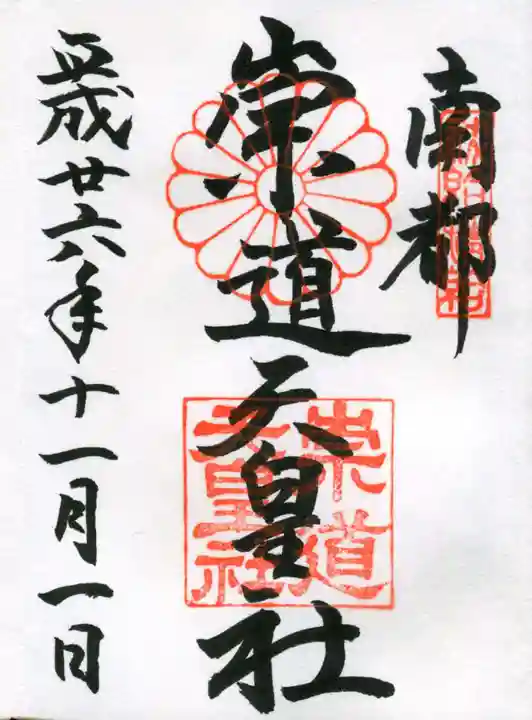 南都
崇道天皇社
崇道
天皇社
平成廿六年十一月一日